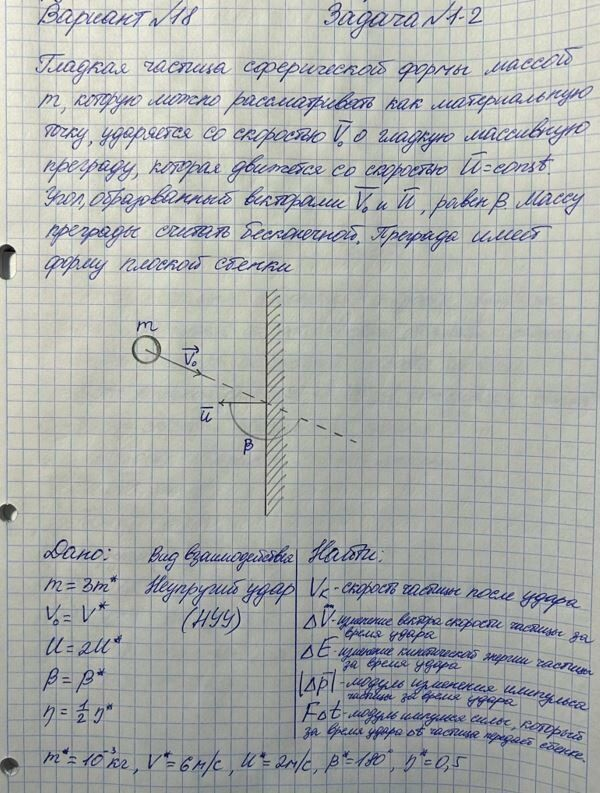 Вариант №18 Задача №1-2
Гладкая частица сферической формы массой
m, которую можно рассматривать как материальную
точку, ударяется со скоростью V₀ о гладкую массивную
преграду, которая движется со скоростью U=const.
Угол, образованный векторами V₀ и U, равен β. Массу
преграды считать бесконечной. Преграда имеет
форму плоской стенки
m
V₀
U
β
Дано: Вид взаимодействия Найти:
m = 3m* Неупругий удар Vк - скорость частицы после удара
V₀ = V* (НУУ) ΔV - изменение вектора скорости частицы за
время удара
U = 2U* ΔE - изменение кинетической энергии частицы
за время удара
β = β* |Δp| - модуль изменения импульса
частицы за время удара
η = 1/2 η* FΔt - модуль импульса силы, который
за время удара Δt частица передаёт стенке.
m* = 10⁻³ кг, V* = 6 м/с, U* = 2 м/с, β* = 180°, η* = 0,5